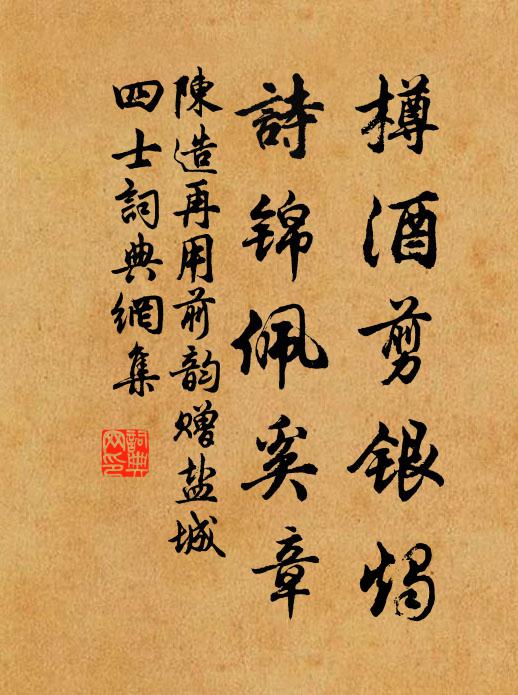 樽酒剪銀燭
詩锦佩奚章
陳造再用前韵赠盐城
四士詞典網集
詞典网印